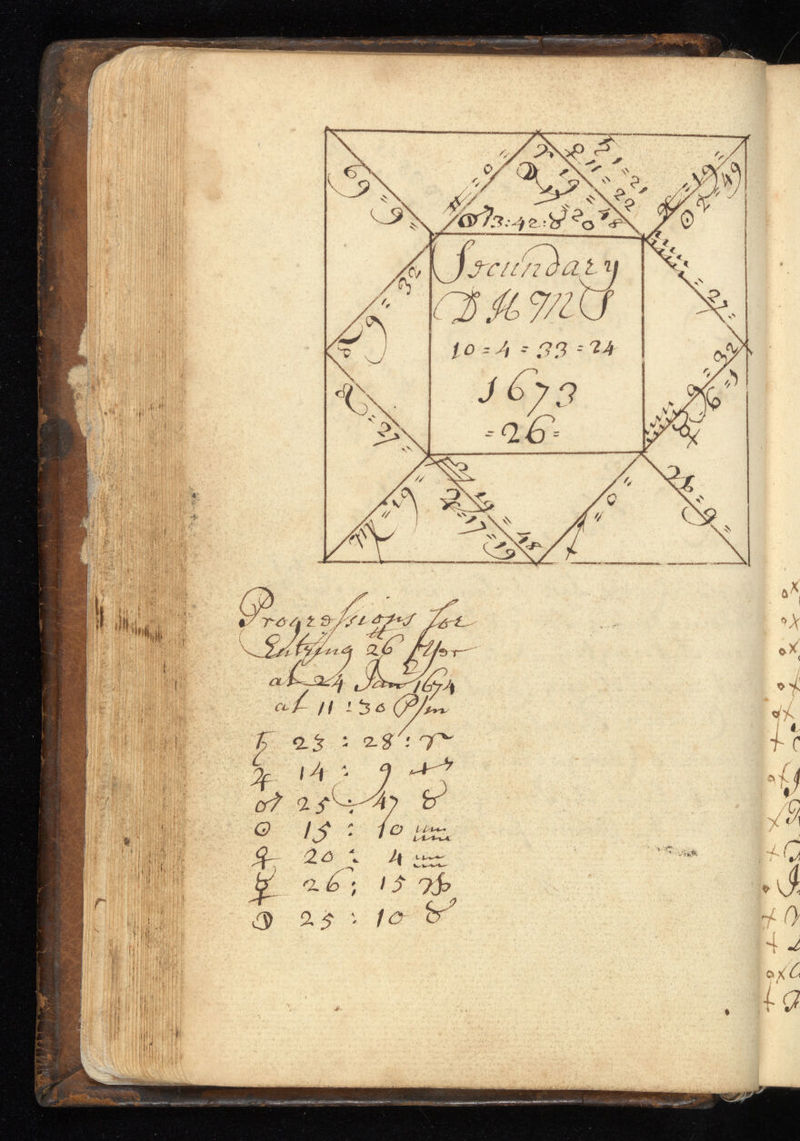 69 = 9 =
♊ = 0 =
♈ 19 = 48
☽ 17 = 20
♀ 11 = 22
♄ 1 = 21
♂ 13 : 42 : ♉
♓ = 19 =
☉ 2 = 49
♒ = 27 =
♌ 9 = 32
Secundary
D H M S
10 = 4 = 33 = 24
1673
= 26 =
♒ 9 = 32
☿ 6 = 1
♌ = 27 =
♍ = 19 =
♎ 19 = 48
♃ = 17 = 19
♐ = 0 =
♑ = 9 =
Progressions for
Entring 26th yer
at 24 Jan 1674
at 11 : 30 P/m
♄ 23 : 28 : ♈
♃ 14 : 9 ♐
♂ 25 : 47 ♉
☉ 15 : 10 ♒
♀ 20 : 4 ♒
☿ 26 : 15 ♑
☽ 25 : 10 ♉